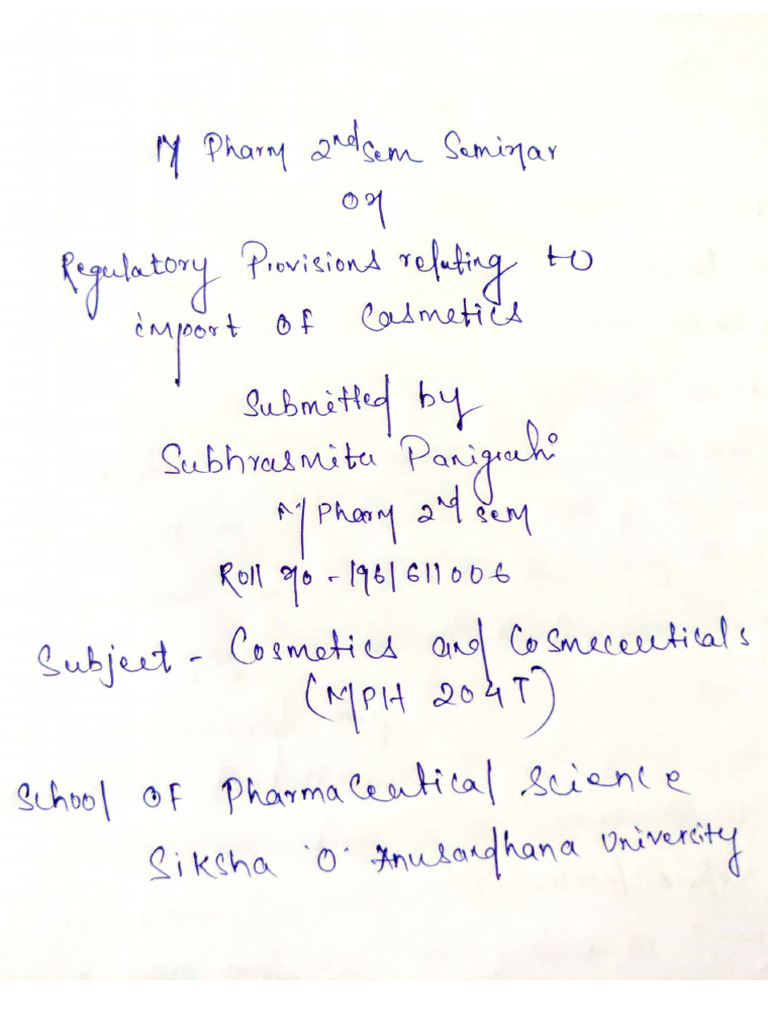 M Pharm 2nd sem Seminar
on
Regulatory Provisions relating to
import of Cosmetics
Submitted by
Subhrasmita Panigrahi
M Pharm 2nd sem
Roll no - 1961611006
Subject - Cosmetics and Cosmeceuticals
(MPH 204T)
School of Pharmaceutical Science
Siksha 'O' Anusandhana University